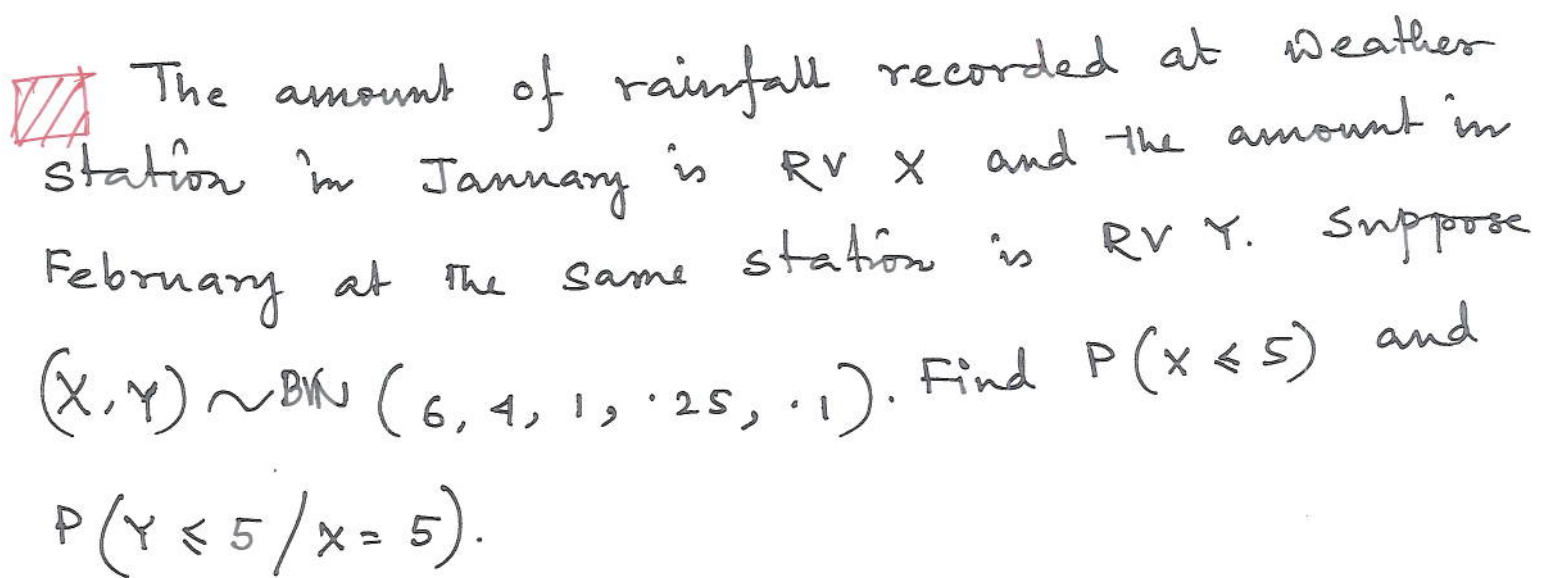 The amount of rainfall recorded at Weather
station in January is RV X and the amount in
February at the same station is RV Y. Suppose
(X,Y) ~ BVN (6, 4, 1, .25, .1). Find P(X ≤ 5) and
P(Y ≤ 5 / X = 5).